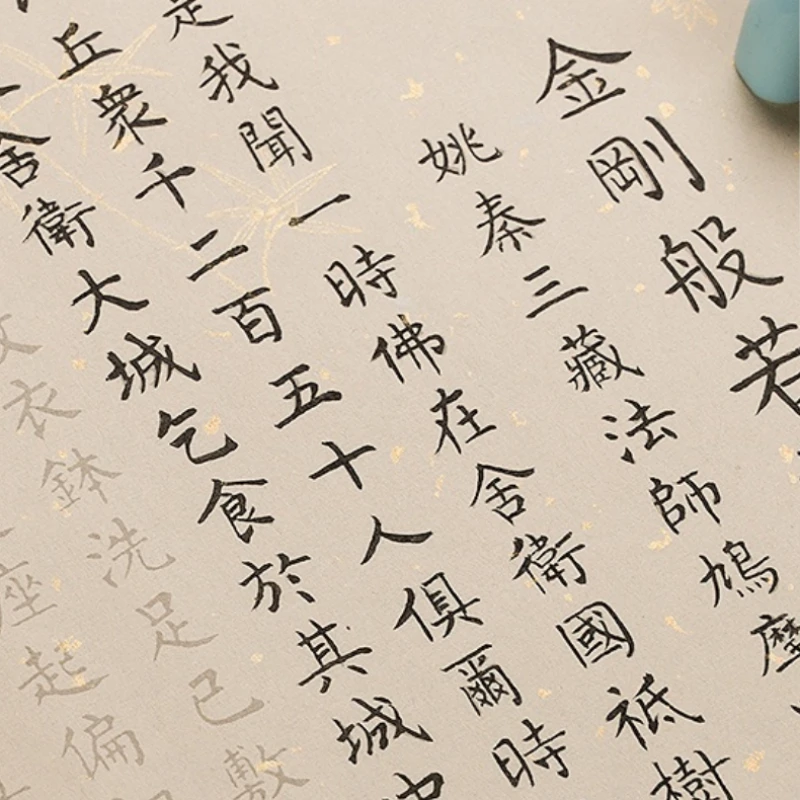 金剛般若
姚秦三藏法師鳩摩
是我聞一時佛在舍衛國祇樹
丘衆千二百五十人俱爾時
舍衛大城乞食於其城中
衣鉢洗足已敷
座起偏